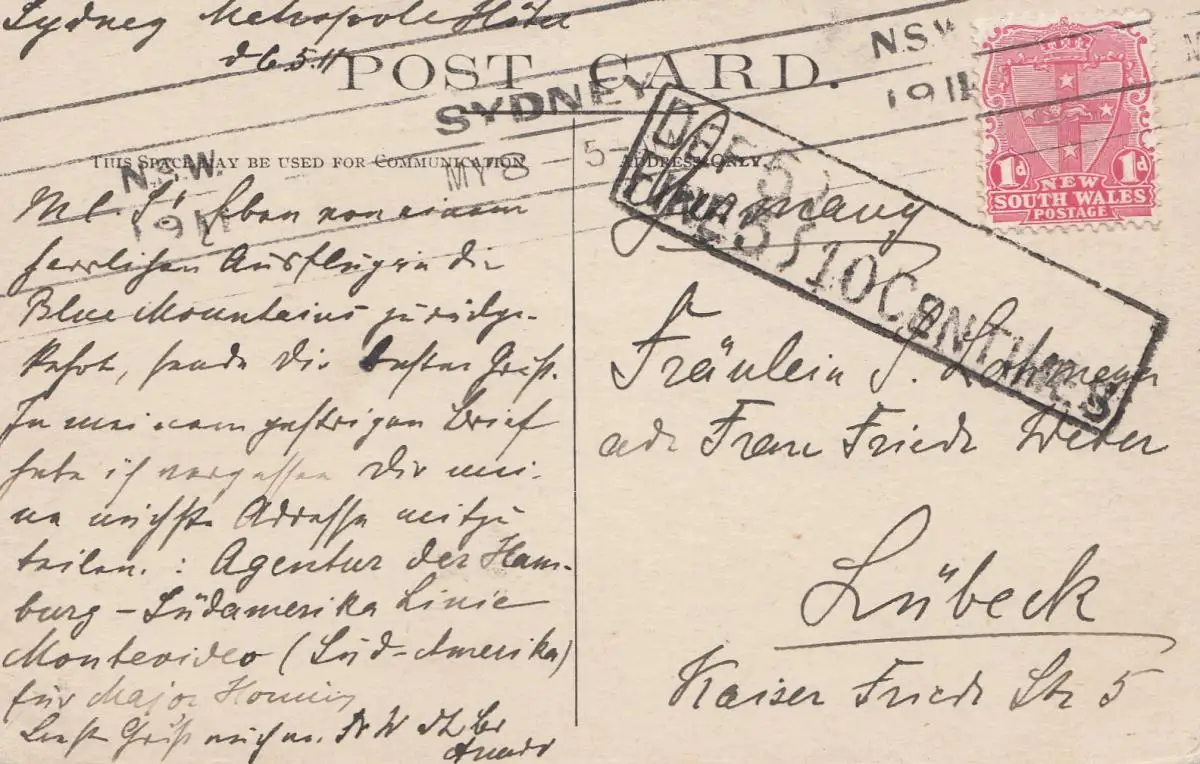 Sydney Metropole Hôtel
d 6.5.11
POST CARD.
SYDNEY
N.S.W.
1911
THIS SPACE MAY BE USED FOR COMMUNICATION
ADDRESS ONLY
MY 8
5
N.S.W.
1911
NEW
SOUTH WALES
POSTAGE
1d
1d
10 CENTIMES
M l. Eben von einem
herrlichen Ausflug in die
Blue Mountains zurückge-
kehrt, sende Dir besten Gruß.
In meinem gestrigen Brief
habe ich vergessen Dir mei-
ne nächste Adresse mitzu
teilen. : Agentur der Ham-
burg - Südamerika Linie
Montevideo (Süd-Amerika)
für Major
Gruß
Germany
Fräulein
adr Frau Friedr Weber
Lübeck
Kaiser Friedr Str 5